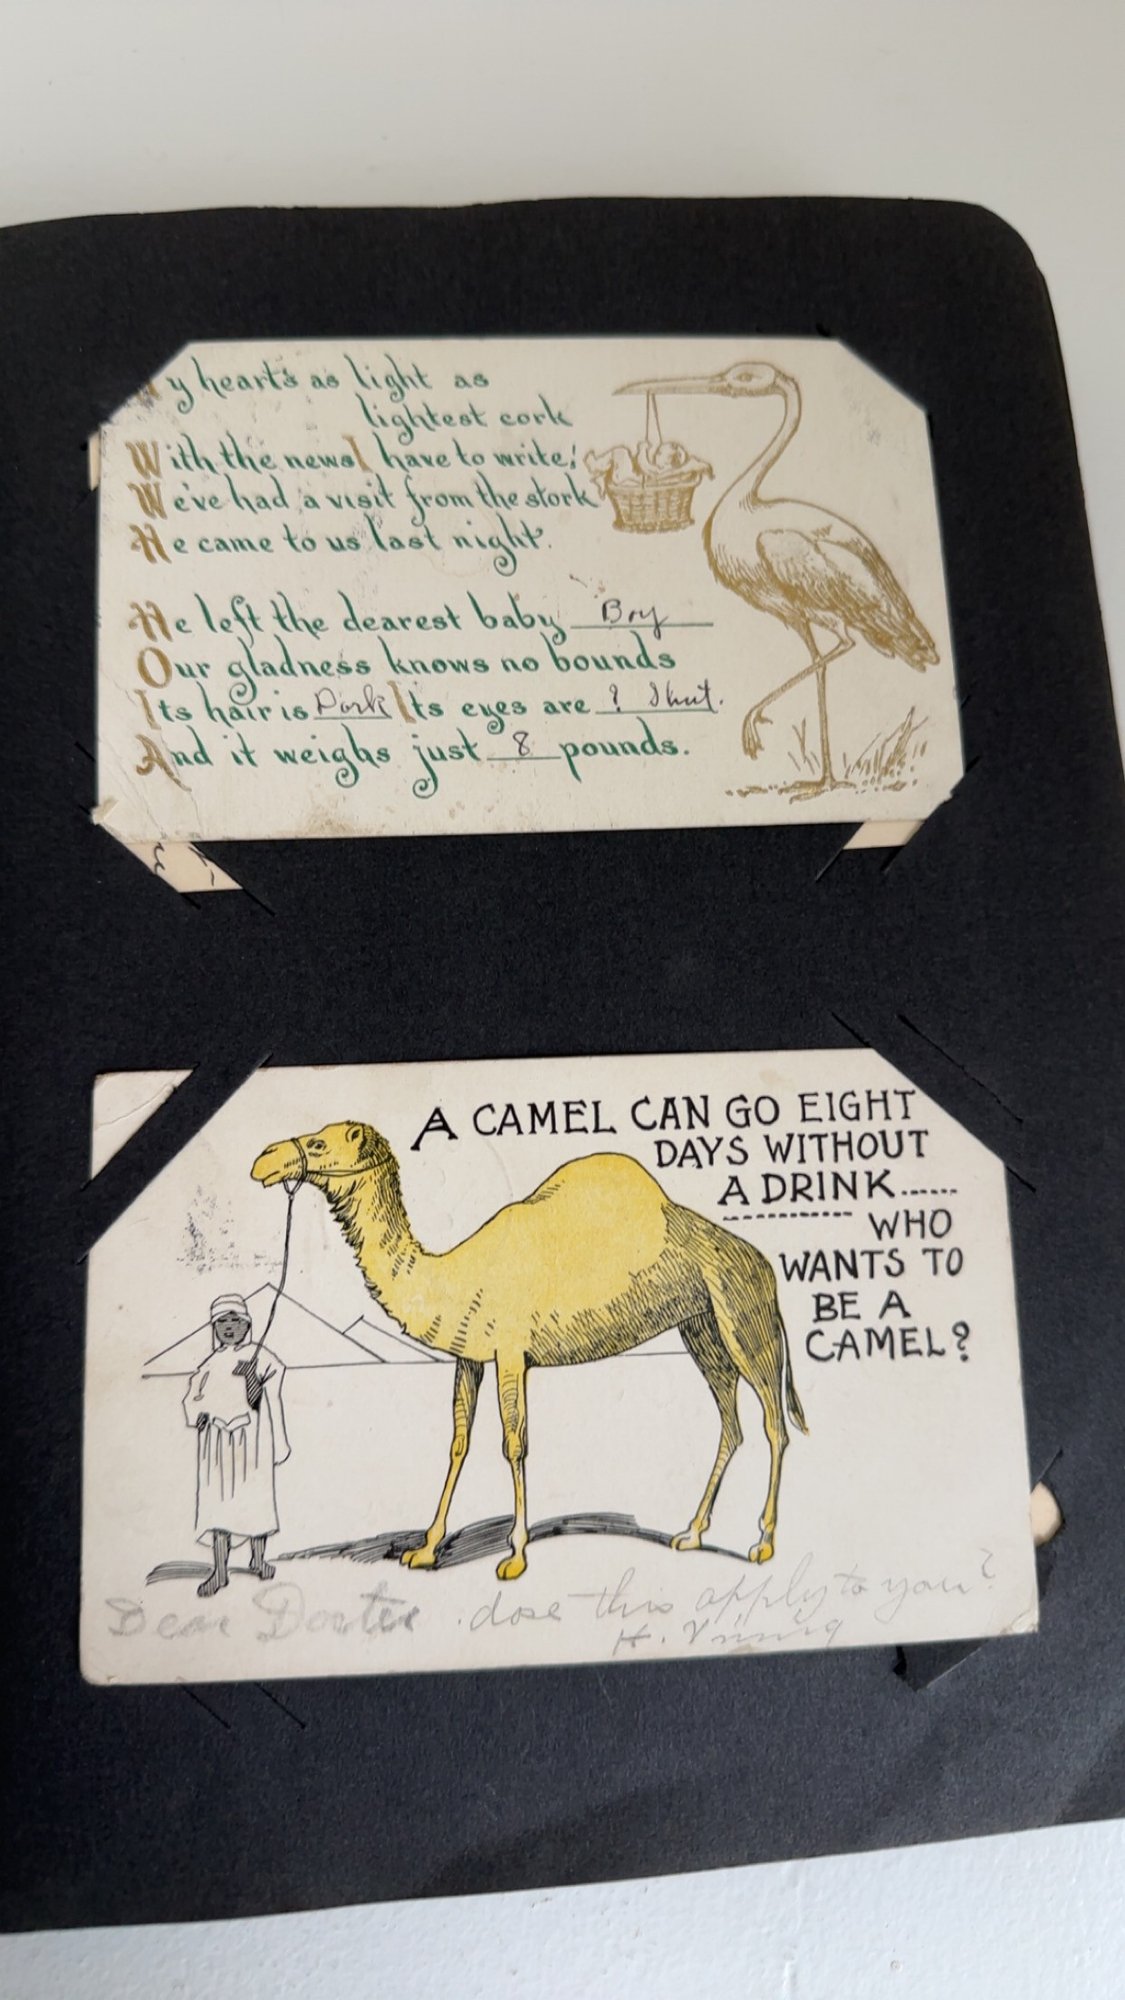 y heart's as light as
lightest cork
With the news I have to write;
We've had a visit from the stork
He came to us last night.
He left the dearest baby Boy
Our gladness knows no bounds
Its hair is Dark Its eyes are ? Shut.
And it weighs just 8 pounds.
A CAMEL CAN GO EIGHT
DAYS WITHOUT
A DRINK......
............ WHO
WANTS TO
BE A
CAMEL?
Dear this apply to you?
H.